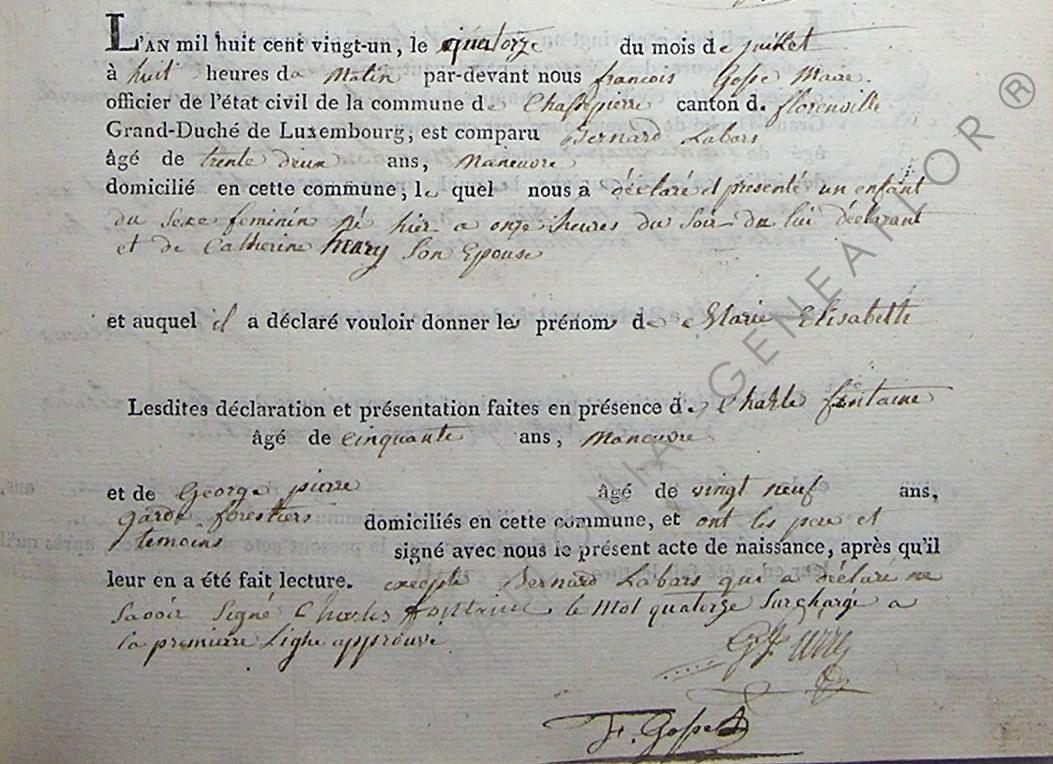 L'AN mil huit cent vingt-un, le quatorze du mois de juillet
à huit heures du Matin par-devant nous francois Gosse Maire
officier de l'état civil de la commune de Chassepierre canton de florenville
Grand-Duché de Luxembourg, est comparu Bernard Labars
âgé de trente deux ans, Maneuvre
domicilié en cette commune, le quel nous a déclaré et presenté un enfant
du Sexe feminin né hier a onze heures du Soir de lui déclarant
et de Catherine Mary Son Epouse
et auquel il a déclaré vouloir donner les prénoms de Marie Elisabette
Lesdites déclaration et présentation faites en présence de Charle fontaine
âgé de cinquante ans, Maneuvre
et de George pierre âgé de vingt neuf ans,
garde forestiers domiciliés en cette commune, et ont les pere et
temoins signé avec nous le présent acte de naissance, après qu'il
leur en a été fait lecture. excepté Bernard Labars qui a déclaré ne
Savoir Signé Charles fontaine le Mot quatorze Surchargé a
la premiere Ligne approuvé
F. Gosse
GENEALOR ®